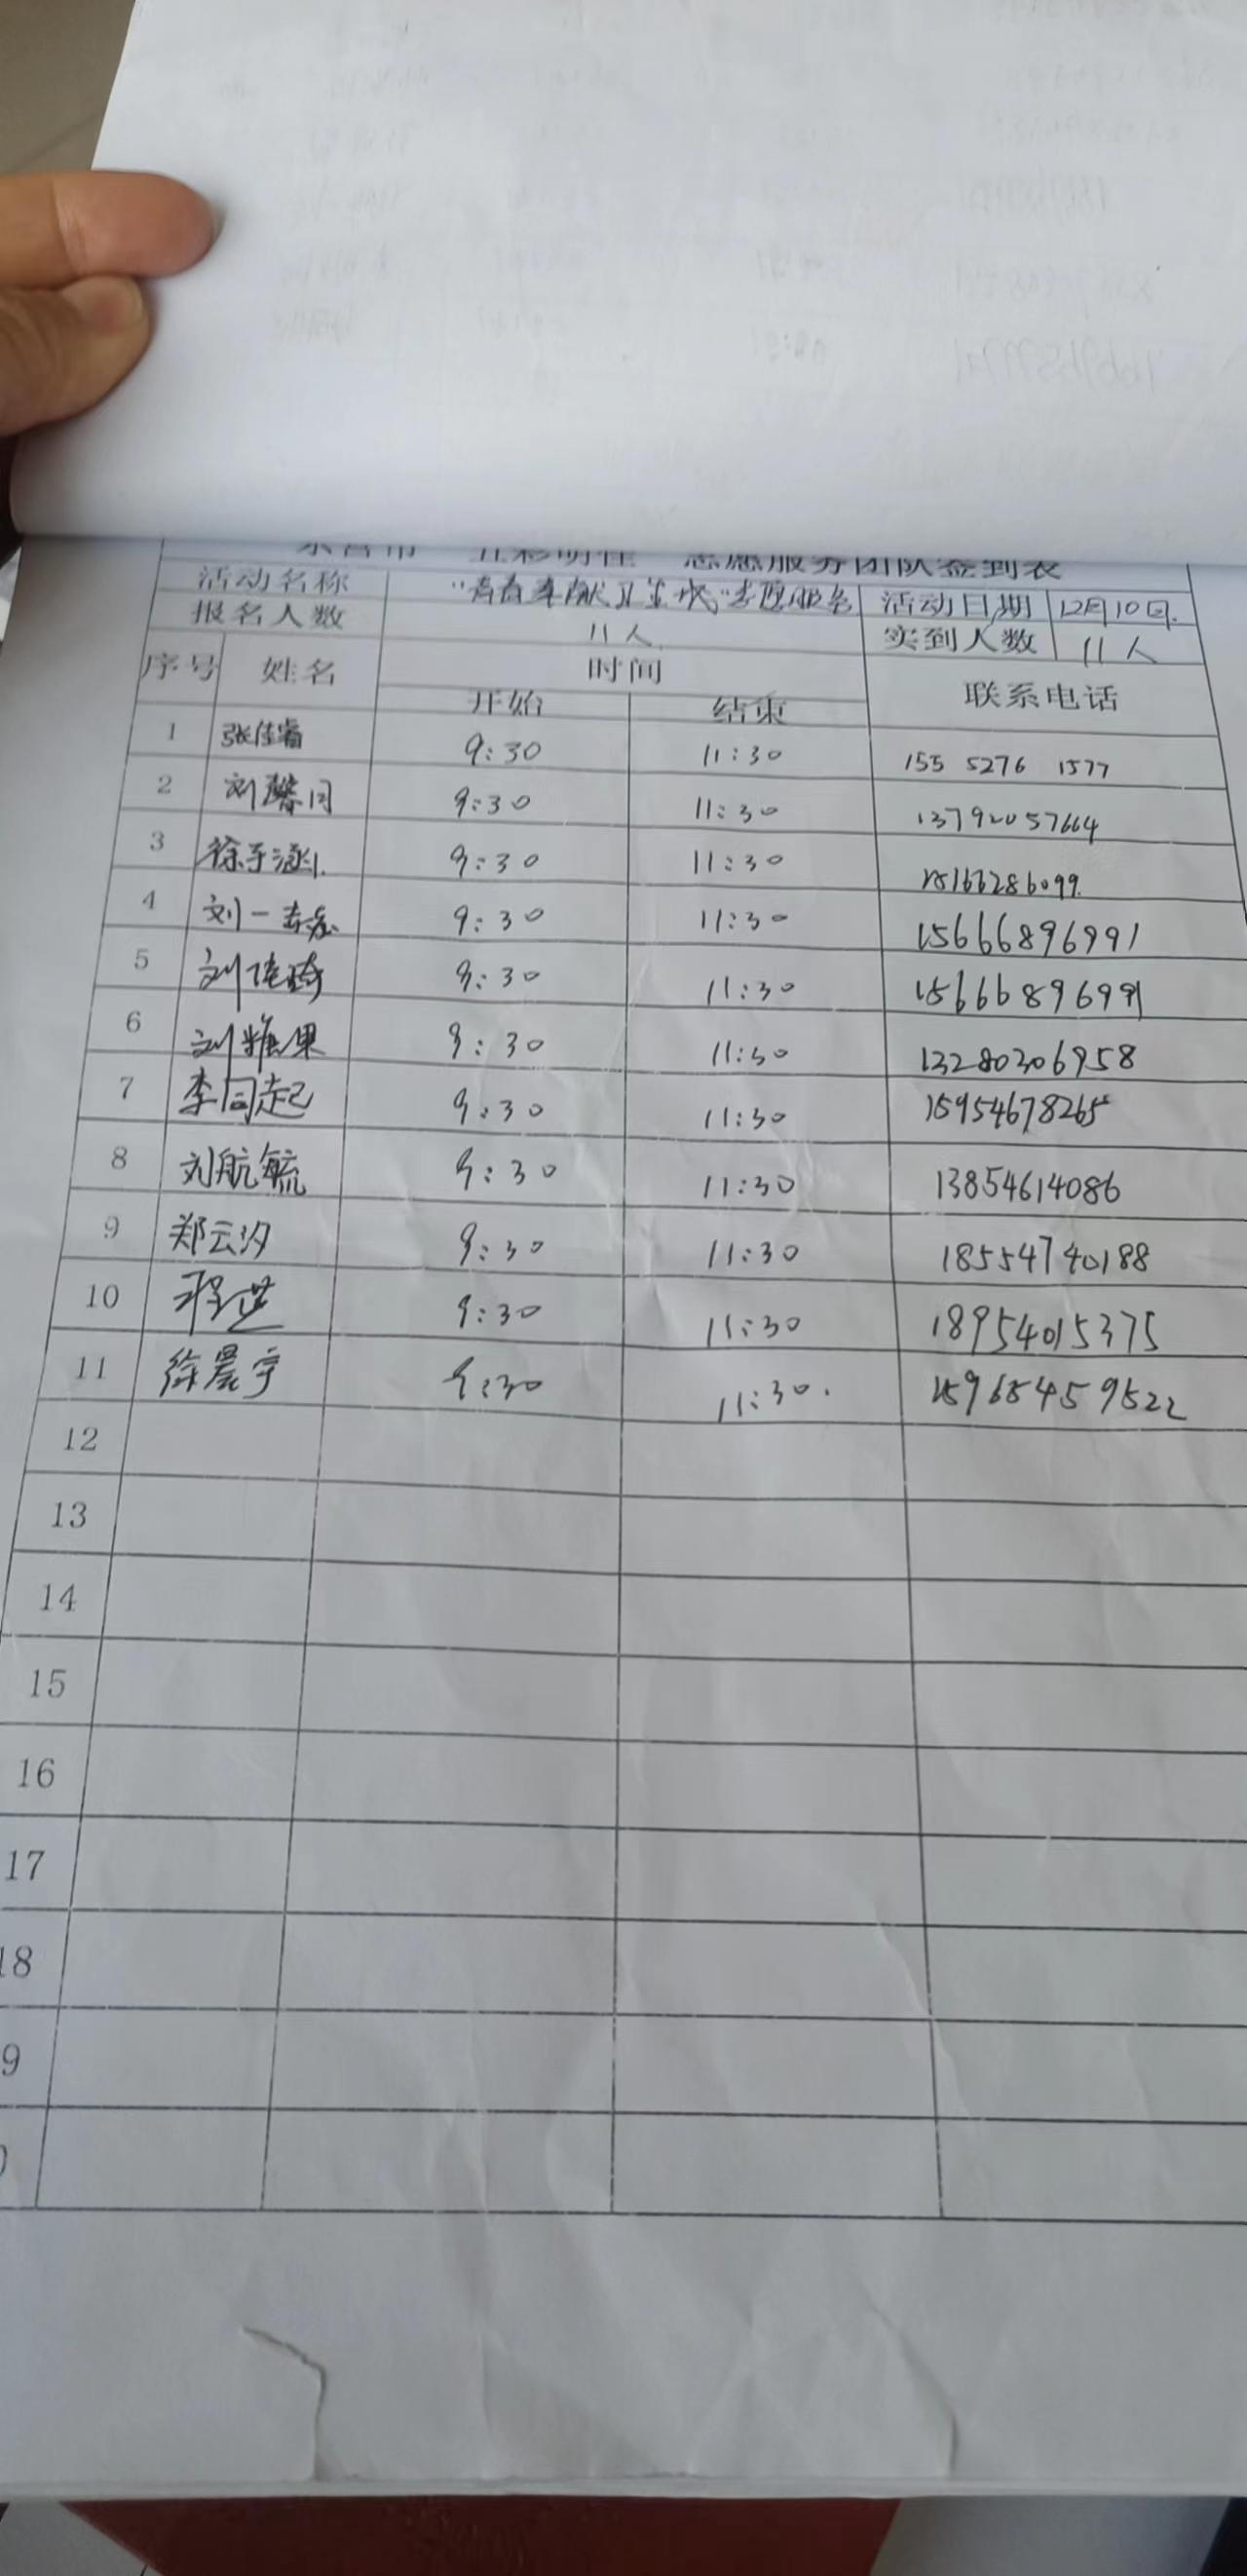 东营市 五彩明佳 志愿服务团队签到表
活动名称 "青春奉献 卫生城"志愿服务 活动日期 12月10日.
报名人数 11人 实到人数 11人
序号 姓名 时间 联系电话
开始 结束
1 张佳睿 9:30 11:30 155 5276 1577
2 刘馨月 9:30 11:30 13792057664
3 徐子涵 9:30 11:30 15166286099
4 刘一 9:30 11:30 15666896991
5 刘佳琦 9:30 11:30 15666896991
6 刘雅果 9:30 11:30 13280306958
7 李同起 9:30 11:30 15954678265
8 刘航毓 9:30 11:30 13854614086
9 郑云汐 9:30 11:30 18554740188
10 9:30 11:30 18954015375
11 徐晨宇 9:30 11:30. 15965459522
12
13
14
15
16
17
18
9